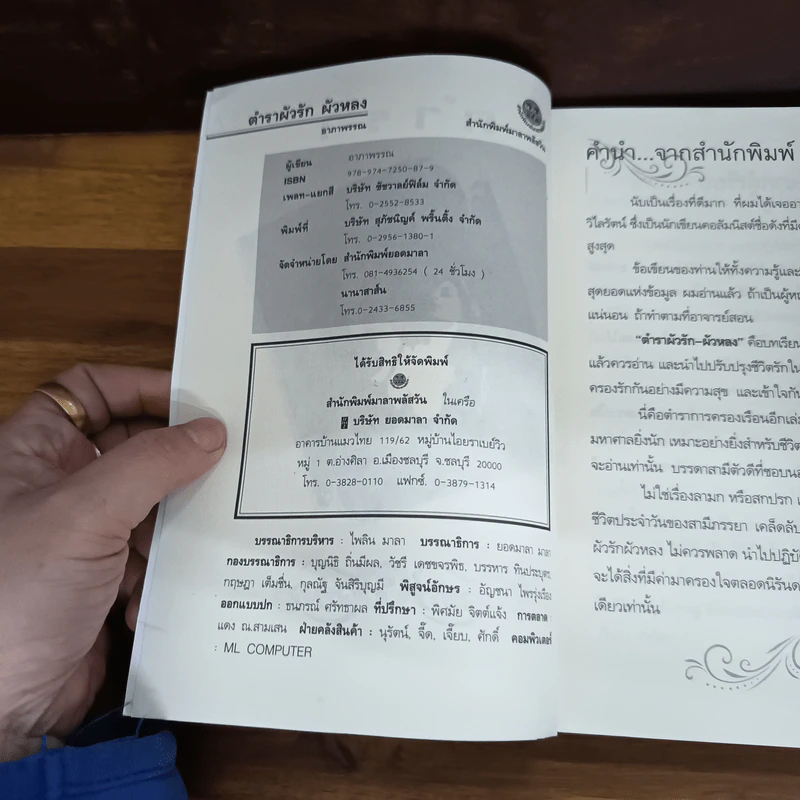 ตำราผัวรัก ผัวหลง
อาภาพรรณ
สำนักพิมพ์มาลาพลัสวัน
ผู้เขียน อาภาพรรณ
ISBN 978-974-7250-87-9
เพลท-แยกสี บริษัท ชัชวาลย์ฟิล์ม จำกัด
โทร. 0-2552-8533
พิมพ์ที่ บริษัท สุภัชนิญค์ พริ้นติ้ง จำกัด
โทร. 0-2956-1380-1
จัดจำหน่ายโดย สำนักพิมพ์ยอดมาลา
โทร. 081-4936254 ( 24 ชั่วโมง )
นานาสาส์น
โทร.0-2433-6855
ได้รับสิทธิให้จัดพิมพ์
สำนักพิมพ์มาลาพลัสวัน ในเครือ
บริษัท ยอดมาลา จำกัด
อาคารบ้านแมวไทย 119/62 หมู่บ้านไอยราเบย์วิว
หมู่ 1 ต.อ่างศิลา อ.เมืองชลบุรี จ.ชลบุรี 20000
โทร. 0-3828-0110 แฟกซ์. 0-3879-1314
บรรณาธิการบริหาร : ไพลิน มาลา บรรณาธิการ : ยอดมาลา มาลา
กองบรรณาธิการ : บุญนิธิ ถิ่นมีผล, วัชรี เดชขจรพิธ, บรรหาร ทินประบุตร,
กฤษฎา เต็มชื่น, กุลณัฐ จันสิริบุญมี พิสูจน์อักษร : อัญชนา ไพรรุ่งเรือง
ออกแบบปก : ธนภรณ์ ศรัทธาผล ที่ปรึกษา : พิศมัย จิตต์แจ้ง การตลาด :
แดง ณ.สามเสน ฝ่ายคลังสินค้า : นุรัตน์, จี๊ด, เจี๊ยบ, ศักดิ์ คอมพิวเตอร์
: ML COMPUTER
คำนำ...จากสำนักพิมพ์
นับเป็นเรื่องที่ดีมาก ที่ผมได้เจออา
วิไลรัตน์ ซึ่งเป็นนักเขียนคอลัมนิสต์ชื่อดังที่มี
สูงสุด
ข้อเขียนของท่านให้ทั้งความรู้และ
สุดยอดแห่งข้อมูล ผมอ่านแล้ว ถ้าเป็นผู้ห
แน่นอน ถ้าทำตามที่อาจารย์สอน
“ตำราผัวรัก-ผัวหลง” คือบทเรียน
แล้วควรอ่าน และนำไปปรับปรุงชีวิตรักใน
ครองรักกันอย่างมีความสุข และเข้าใจกัน
นี่คือตำราการครองเรือนอีกเล่ม
มหาศาลยิ่งนัก เหมาะอย่างยิ่งสำหรับชีวิต
จะอ่านเท่านั้น บรรดาสามีตัวดีที่ชอบนอ
ไม่ใช่เรื่องลามก หรือสกปรก
ชีวิตประจำวันของสามีภรรยา เคล็ดลับ
ผัวรักผัวหลง ไม่ควรพลาด นำไปปฏิบัติ
จะได้สิ่งที่มีค่ามาครองใจตลอดนิรันด
เดียวเท่านั้น